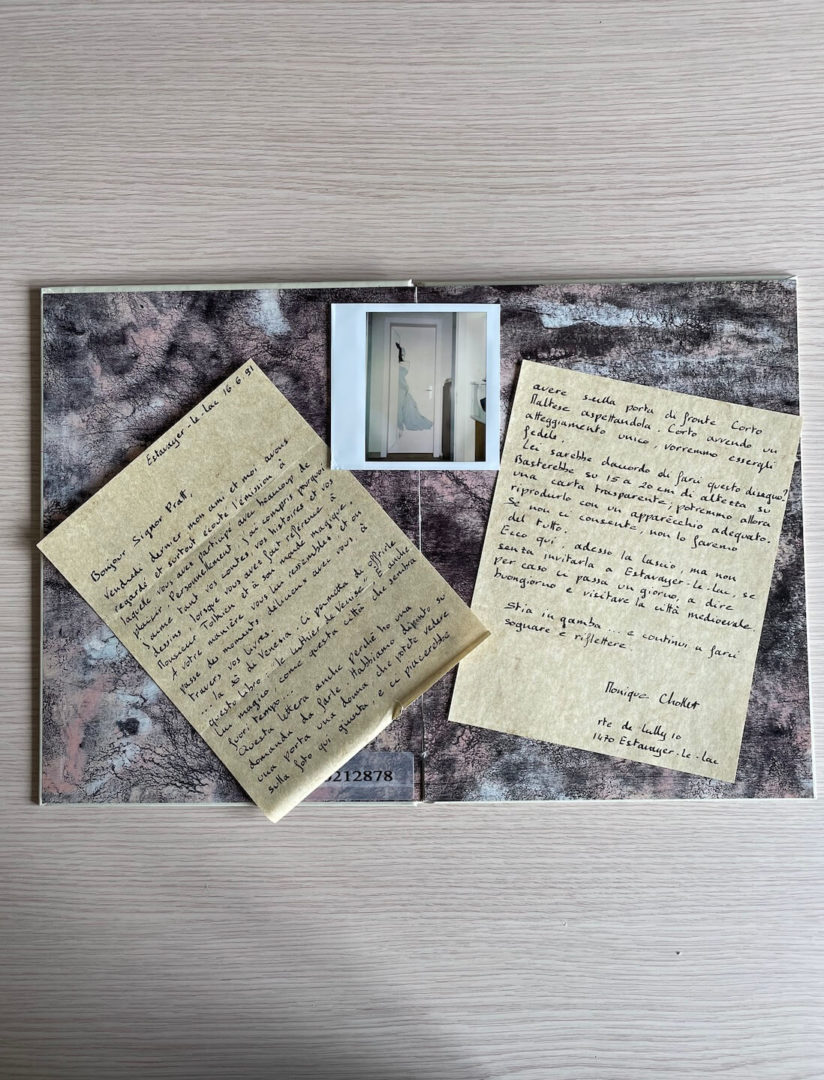 Estavayer-le-Lac 16.6.91
Bonjour Signor Pratt,
Vendredi dernier mon ami et moi avons
regardé et surtout écouté l'émission à
laquelle vous avez participé avec beaucoup de
plaisir. Personnellement j'ai compris pourquoi
j'aime tant vos contes, vos histoires et vos
dessins lorsque vous avez fait référence à
Monsieur Tolkien et à son monde magique.
A votre manière vous lui ressemblez et on
passe des moments délicieux avec vous à
travers vos livres.
... la so di Venezia. Ci permetta di offrirle
questo libro : le luthier de Venise. È anche
lui magico come questa città che sembra
fuori tempo...
Questa lettera anche perchè ho una
domanda da farle. Habbiamo dipinto su
una porta una donna che potete vedere
sulla foto qui giunta e ci piacerebbe
212878
avere sulla porta di fronte Corto
Maltese aspettandola. Corto avendo un
atteggiamento unico, vorremmo essergli
fedele.
Lei sarebbe daccordo di farci questo disegno?
Basterebbe su 15 a 20 cm di altezza su
una carta trasparente, potremmo allora
riprodurlo con un apparecchio adequato.
Se non ci consente, non lo faremo
del tutto.
Ecco qui, adesso la lascio, ma non
senza invitarla a Estavayer-le-Lac, se
per caso ci passa un giorno, a dire
buongiorno e visitare la città medioevale.
Stia in gamba ... e continui a farci
sognare e riflettere.
Monique Chollet
rte de Lully 10
1470 Estavayer-le-Lac